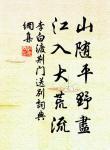 山隨平野盡
江入大荒流
李白渡荆门送别詞典
網集